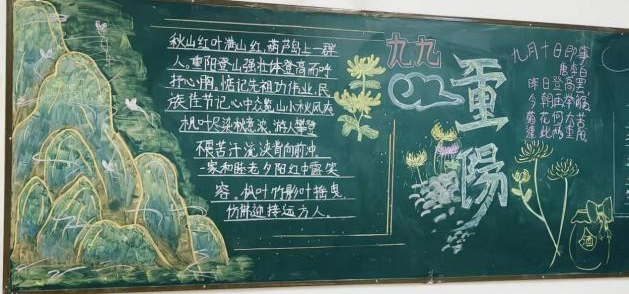 秋山红叶满山红,葫芦岛上一群
人。重阳登山强壮体登高而呼
抒心胸,惦记先祖功伟业,民
族佳节记心中众览山小秋风爽
枫叶尽染秋意浓,游人攀登
不畏苦汗流浃背向前冲
一家和睦老夕阳红中露笑
容。枫叶竹影叶摇曳,
伤情迎接远方人。
九九
重陽
九月十日即事
唐 李白
昨日登高罢
今朝再举觞
菊花何太苦
遭此两重陽
酒